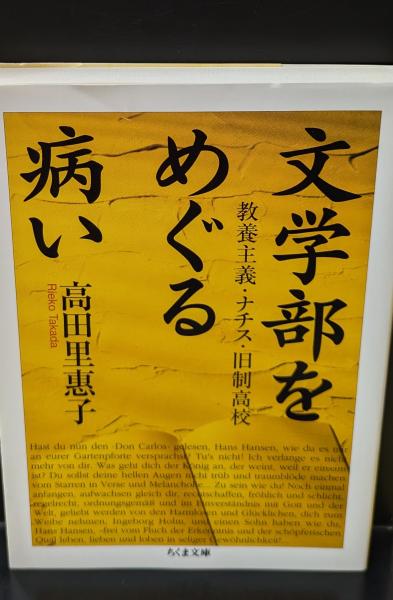 文学部を
めぐる
病い
教養主義・ナチス・旧制高校
高田里惠子
Rieko Takada
Hast du nun den ›Don Carlos‹ gelesen, Hans Hansen, wie du es mir
an eurer Gartenpforte versprachst? Tu's nicht! Ich verlange es nicht
mehr von dir. Was geht dich der König an, der weint, weil er einsam
ist? Du sollst deine hellen Augen nicht trüb und traumblöde machen
vom Starren in Verse und Melancholie... Zu sein wie du! Noch einmal
anfangen, aufwachsen gleich dir, rechtschaffen, fröhlich und schlicht,
regelrecht, ordnungsgemäß und im Einverständnis mit Gott und der
Welt, geliebt werden von den Harmlosen und Glücklichen, dich zum
Weibe nehmen, Ingeborg Holm, und einen Sohn haben wie du,
Hans Hansen, –frei vom Fluch der Erkenntnis und der schöpferischen
Qual leben, lieben und loben in seliger Gewöhnlichkeit!
ちくま文庫